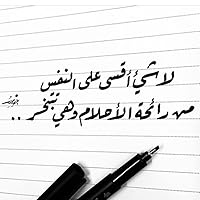 لا شيء أقسى على النفس
من رائحة الأحلام وهي تتبخر ..